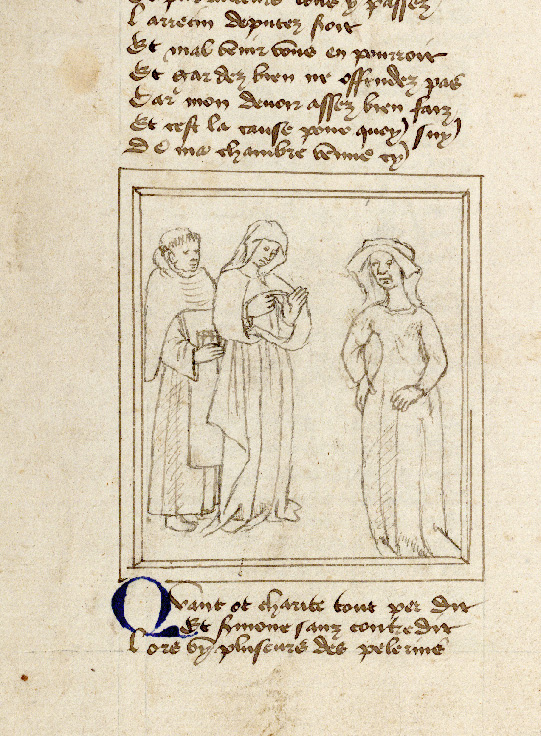 vous y passez
L'arrecin deputez soit
Et mal venir vous en pourroit
Et gardez bien ne offendez pas
Car mon devoir assez bien faiz
Et cest la cause pour quoy suy
De ma chambre venue cy
Quant ot charite tout par dit
Et simone sanz contredit
Lors vy pluseurs des pelerins